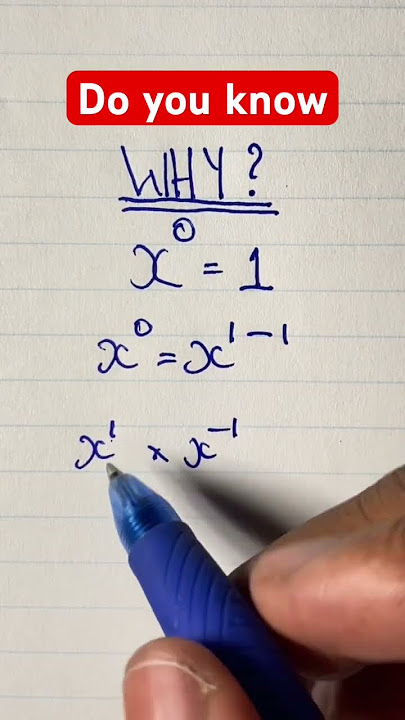 Do you know
WHY?
x⁰ = 1
x⁰ = x¹⁻¹
x¹ × x⁻¹